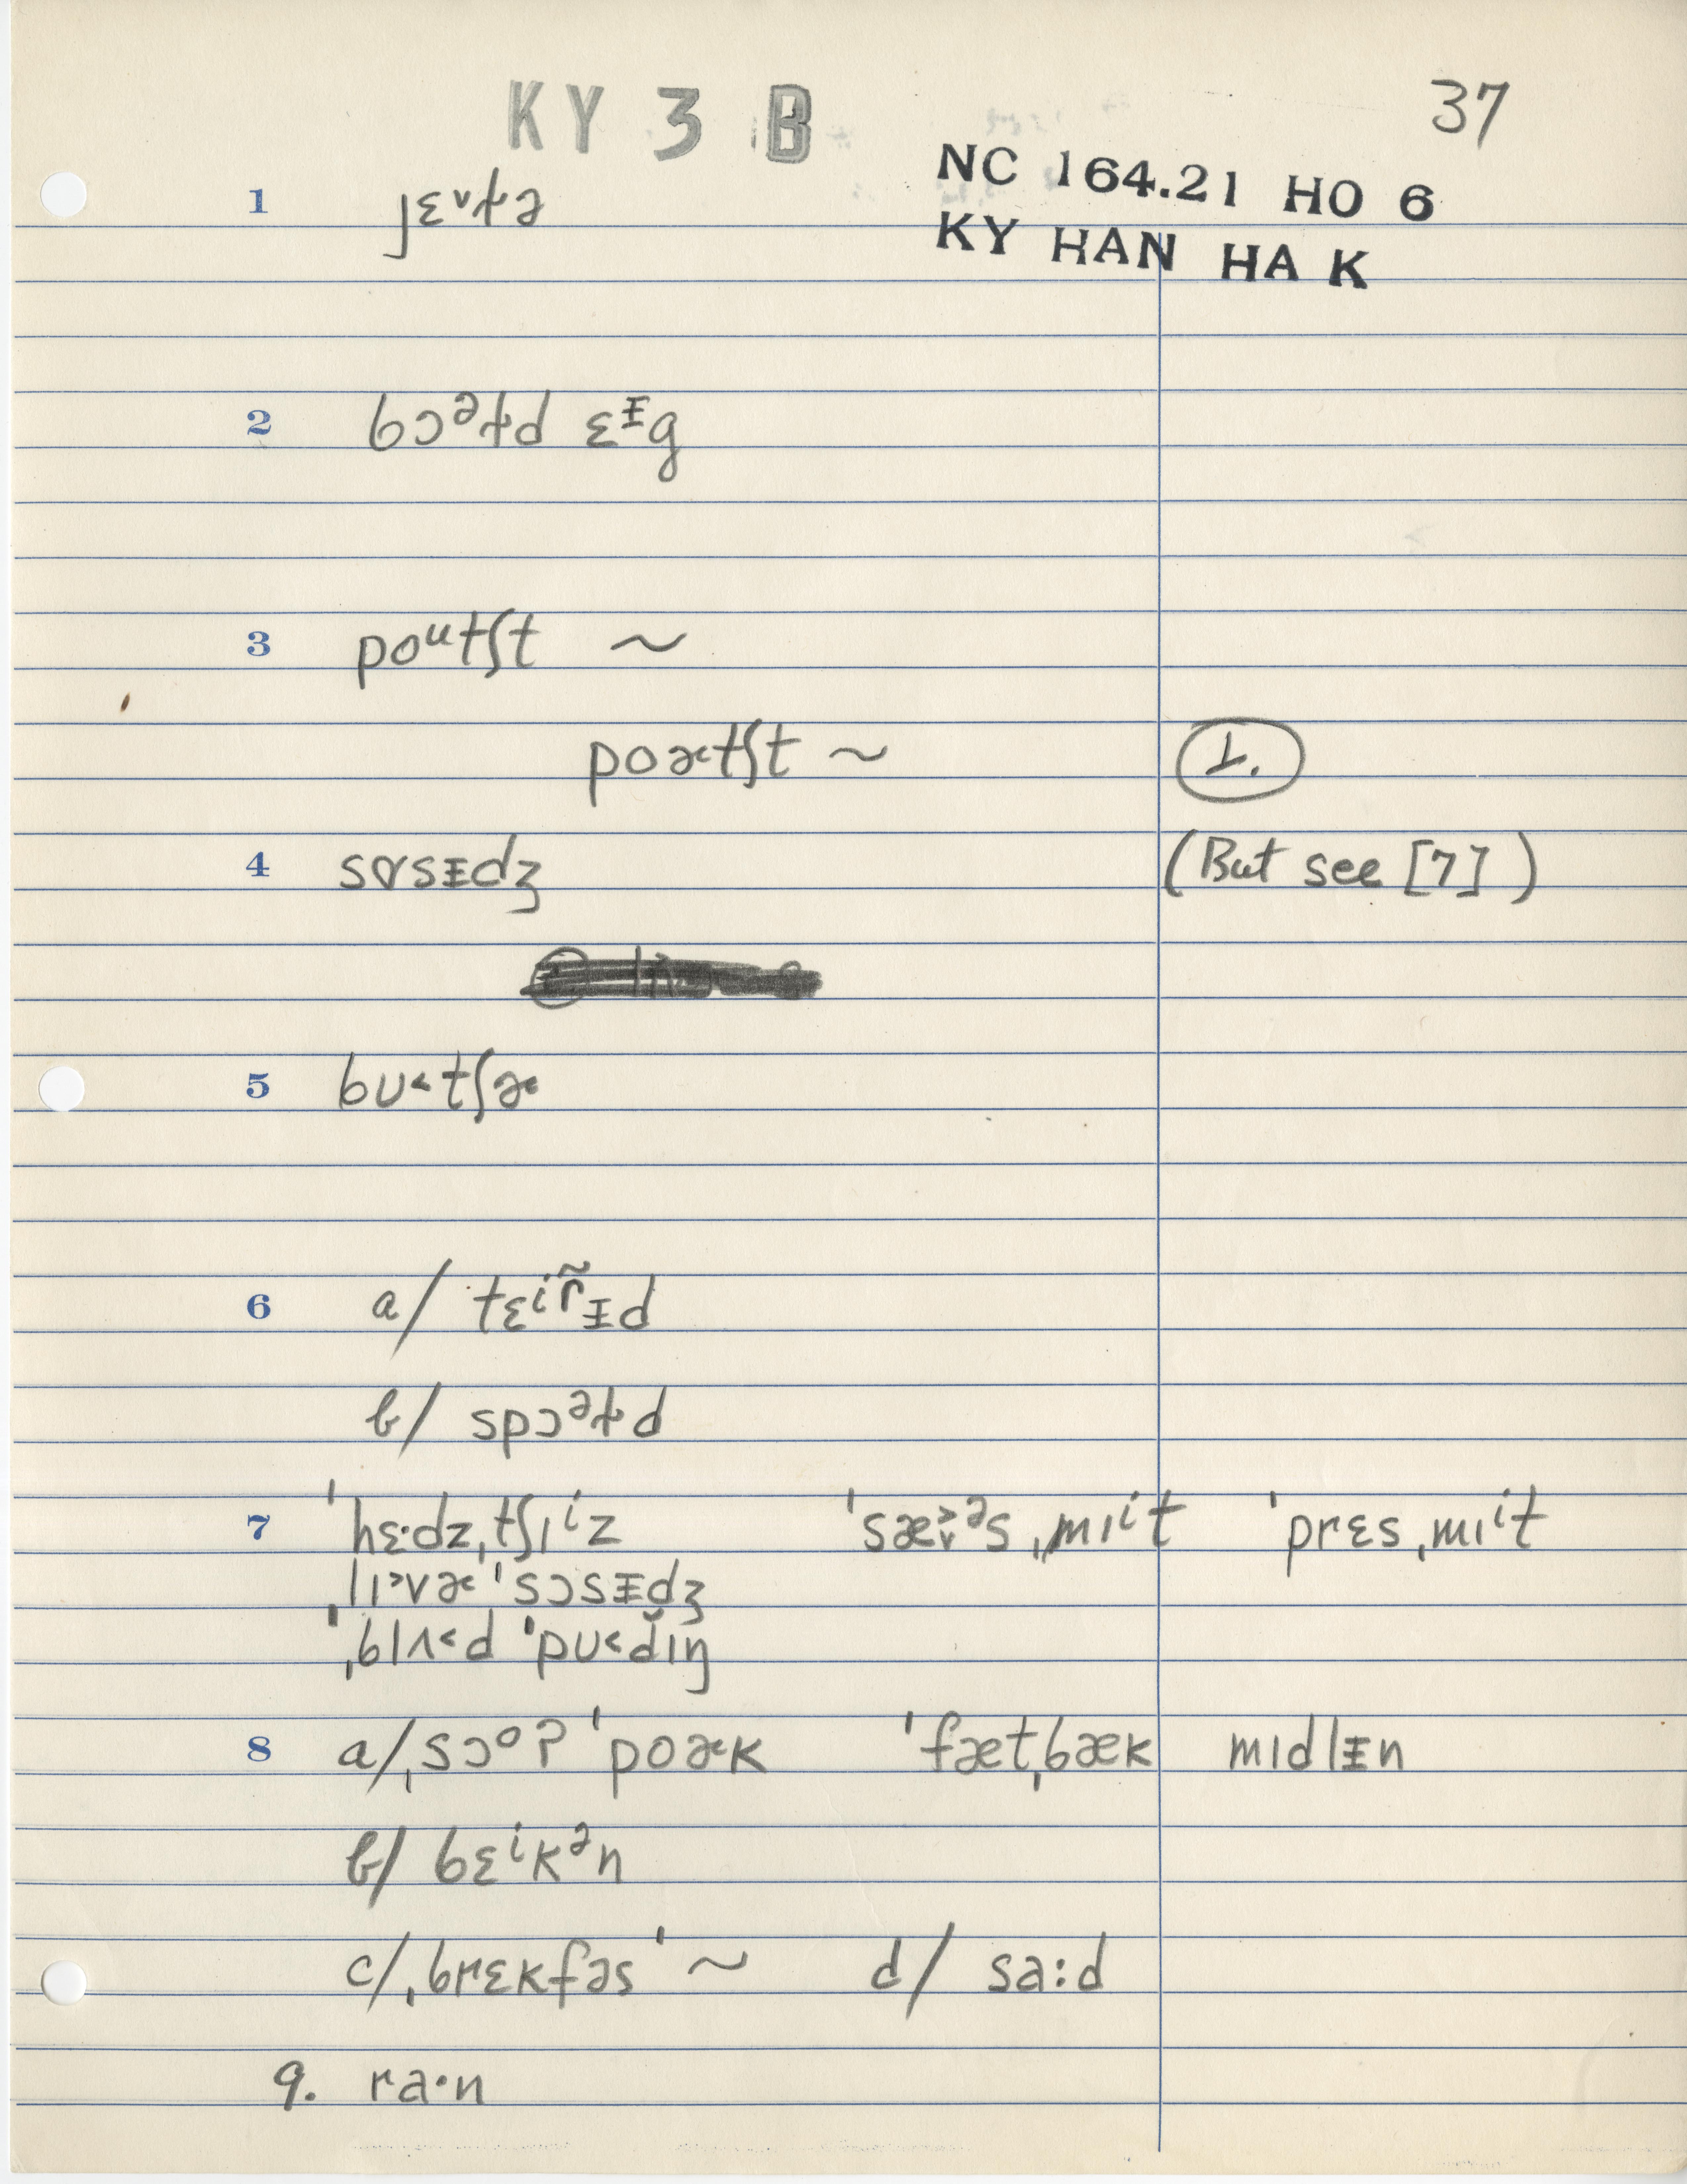 KY 3 B
37
NC 164.21 HO 6
KY HAN HA K
1 jɛˠɫə
2 bɔᵊɫd ɛᵻg
3 poᵘtʃt ~
poɚtʃt ~
⊥.
4 sɑsᵻdʒ (But see [7])
5 bʊ˂tʃɚ
6 a/ tɛⁱɾ̃ᵻd
b/ spɔᵊɫd
7 ˈhɛ·dzˌtʃɪⁱz ˈsæˬᵊsˌmɪⁱt ˈprɛsˌmɪⁱt
ˌlɪ˃vɚ ˈsɔsᵻdʒ
ˌblʌ˃d ˈpʊ˂dɪŋ
8 a/ ˌsɔᵒʔ ˈpoɚk ˈfætˌbæk mɪdlᵻn
b/ bɛⁱkᵊn
c/ ˌbrɛkfəs ˈ ~ d/ sa:d
9. ra·n